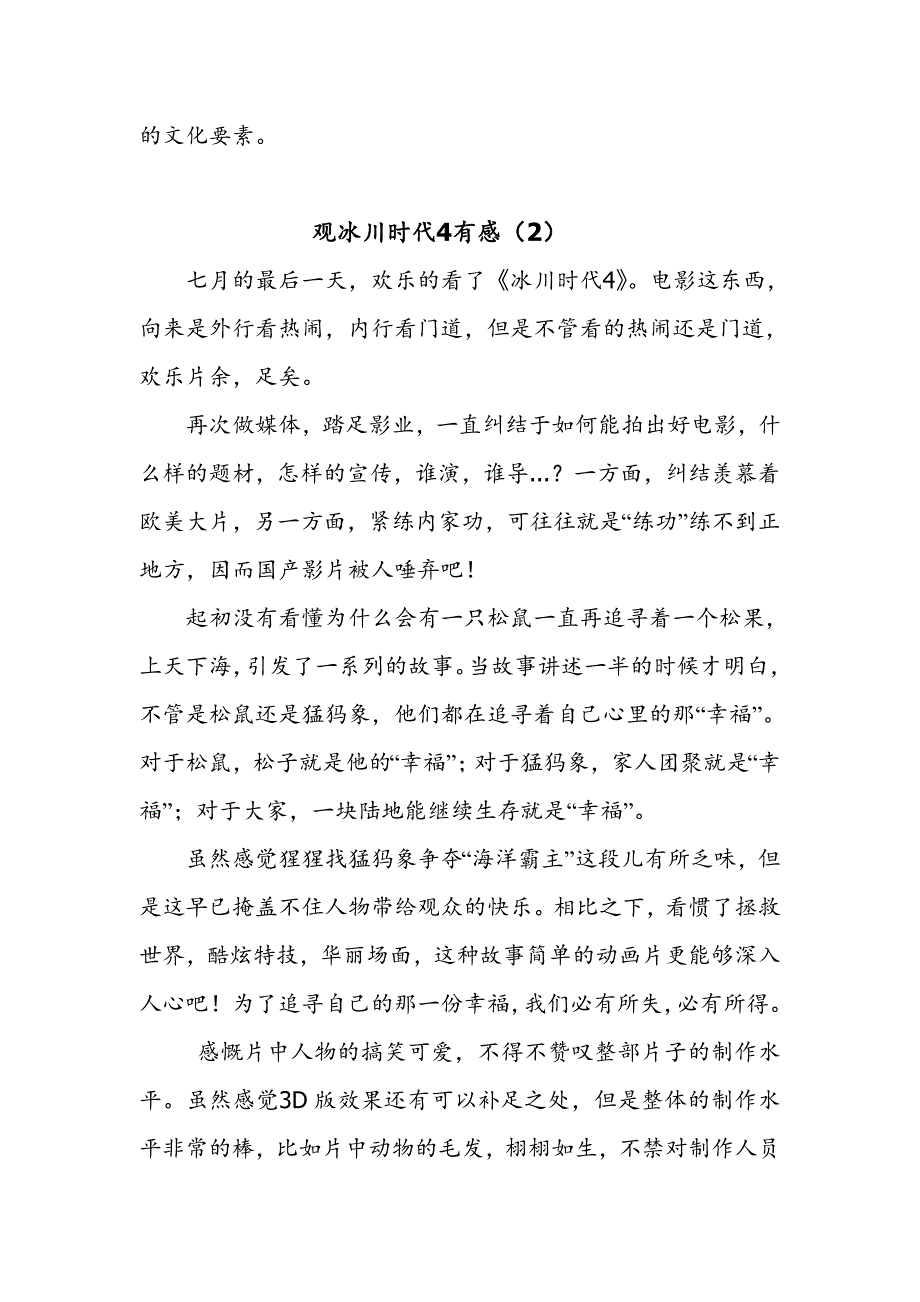 的文化要素。
观冰川时代4有感（2）
七月的最后一天，欢乐的看了《冰川时代4》。电影这东西，
向来是外行看热闹，内行看门道，但是不管看的热闹还是门道，
欢乐片余，足矣。
再次做媒体，踏足影业，一直纠结于如何能拍出好电影，什
么样的题材，怎样的宣传，谁演，谁导...？一方面，纠结羡慕着
欧美大片，另一方面，紧练内家功，可往往就是“练功”练不到正
地方，因而国产影片被人唾弃吧！
起初没有看懂为什么会有一只松鼠一直再追寻着一个松果，
上天下海，引发了一系列的故事。当故事讲述一半的时候才明白，
不管是松鼠还是猛犸象，他们都在追寻着自己心里的那“幸福”。
对于松鼠，松子就是他的“幸福”；对于猛犸象，家人团聚就是“幸
福”；对于大家，一块陆地能继续生存就是“幸福”。
虽然感觉猩猩找猛犸象争夺“海洋霸主”这段儿有所乏味，但
是这早已掩盖不住人物带给观众的快乐。相比之下，看惯了拯救
世界，酷炫特技，华丽场面，这种故事简单的动画片更能够深入
人心吧！为了追寻自己的那一份幸福，我们必有所失，必有所得。
感慨片中人物的搞笑可爱，不得不赞叹整部片子的制作水
平。虽然感觉3D 版效果还有可以补足之处，但是整体的制作水
平非常的棒，比如片中动物的毛发，栩栩如生，不禁对制作人员